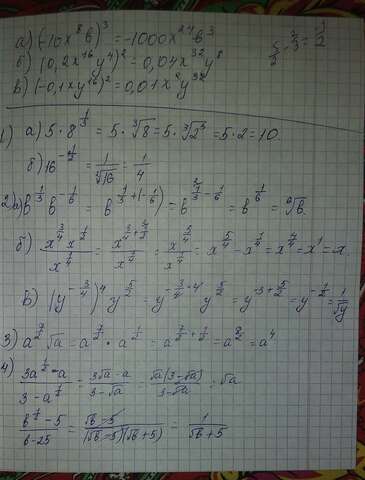 а) (-10x⁸b)³ = -1000x²⁴b³
б) (0,2x¹⁶y⁴)² = 0,04x³²y⁸
в) (-0,1xy¹⁶)² = 0,01x²y³²
1) а) 5 · 8^(1/3) = 5 · ∛8 = 5 · ∛2³ = 5 · 2 = 10
б) 16^(-1/2) = 1/√16 = 1/4
2) а) b^(1/3) b^(-1/6) = b^(1/3+(-1/6)) = b^(1/3-1/6) = b^(1/6) = ⁶√b
б) x^(3/4) x^(1/2) / x^(1/4) = x^(3/4+1/2) / x^(1/4) = x^(5/4) / x^(1/4) = x^(5/4) - x^(1/4) = x^(4/4) = x¹ = x.
в) (y^(-3/4))⁴ y^(5/2) = y^(-3/4·4) y^(5/2) = y^(-3+5/2) = y^(-1/2) = 1/√y
3) a^(7/2) √a = a^(7/2) · a^(1/2) = a^(7/2+1/2) = a^(8/2) = a⁴
4)
(3a^(1/2) - a) / (3 - a^(1/2)) = (3√a - a) / (3 - √a) = √a(3 - √a) / (3 - √a) = √a
(b^(1/2) - 5) / (b - 25) = (√b - 5) / ((√b - 5)(√b + 5)) = 1 / (√b + 5)